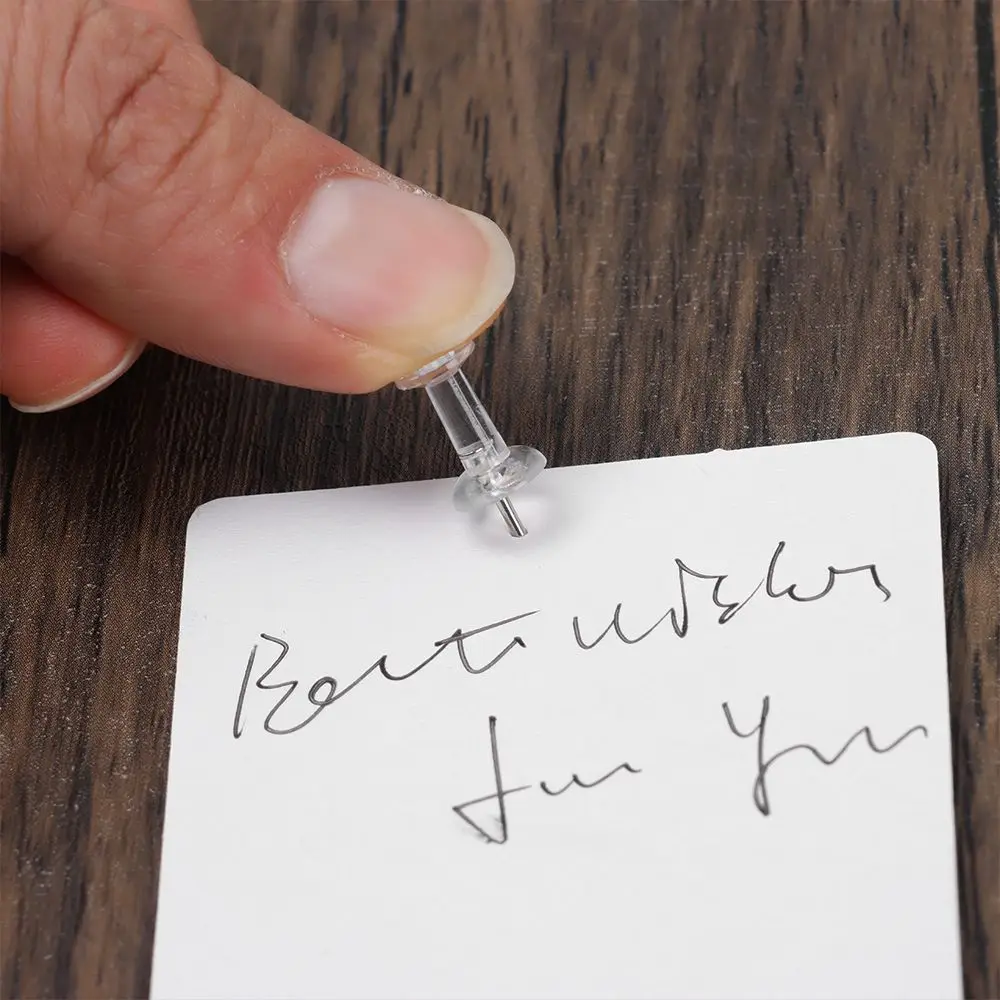 Best wishes
for you